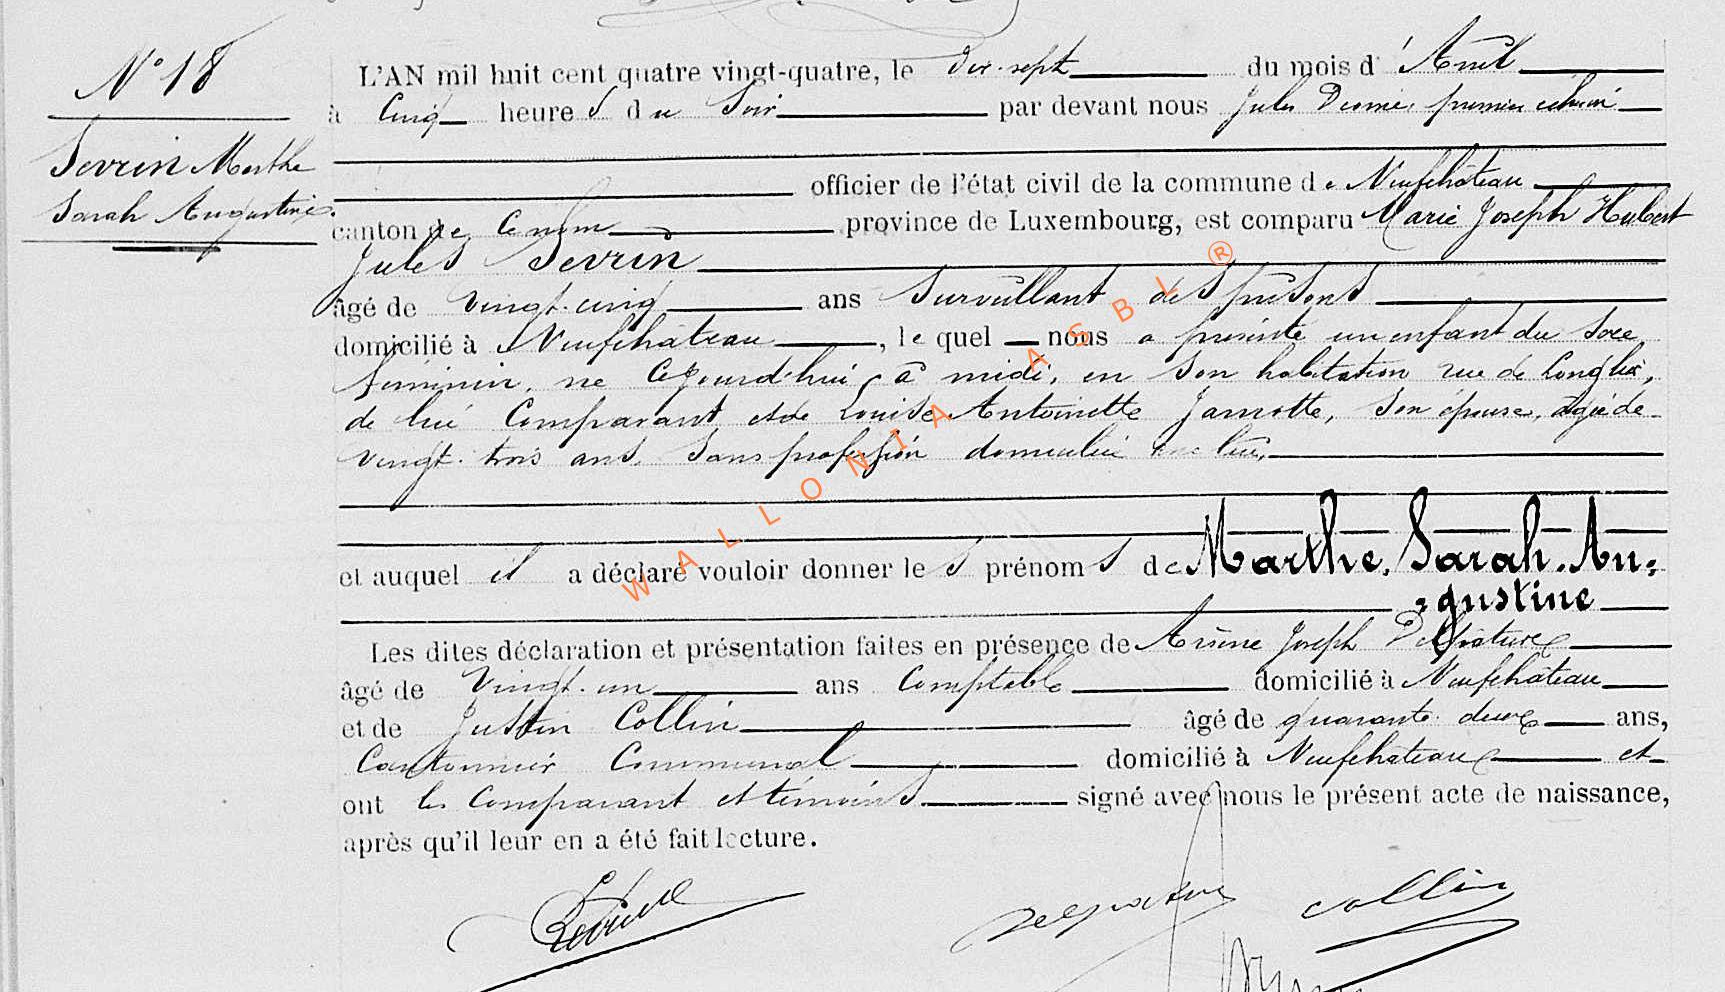 N° 18
Sevrin Marthe
Sarah Augustine.
L'AN mil huit cent quatre vingt-quatre, le dix-sept du mois d'Avril
à Cinq heures du Soir par devant nous Jules premier échevin
officier de l'état civil de la commune de Neufchâteau
canton de Ce nom province de Luxembourg, est comparu Marie Joseph Hubert
Jules Sevrin
âgé de vingt-cinq ans Surveillant des prisons
domicilié à Neufchâteau, lequel nous a présenté un enfant du sexe
féminin, né Cejourd'hui à midi, en son habitation rue de Longlier,
de lui Comparant et de Louise Antoinette Jamotte, son épouse, âgée de
vingt-trois ans, Sans profession domiciliée
et auquel il a déclaré vouloir donner les prénoms de Marthe, Sarah, Au=
=gustine
Les dites déclaration et présentation faites en présence de Arsène Joseph Delpature
âgé de Vingt-un ans Comptable domicilié à Neufchâteau
et de Justin Collin âgé de quarante-deux ans,
Cantonnier Communal domicilié à Neufchâteau et
ont les Comparant et témoins signé avec nous le présent acte de naissance,
après qu'il leur en a été fait lecture.
Collin
WALLONIA ASBL ®